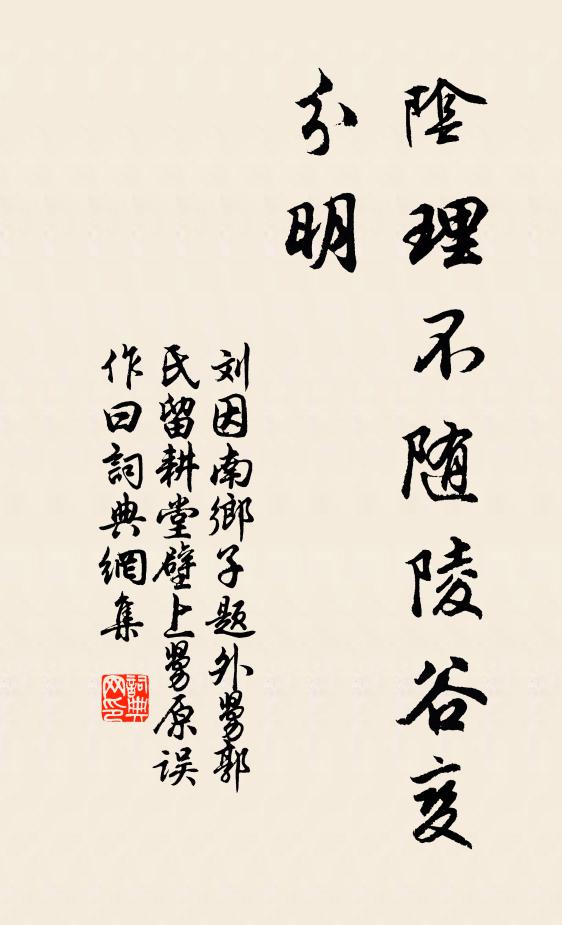 陰理不随陵谷变
分明
刘因南鄉子题外舅郭
氏留耕堂壁上舅原误
作曰詞典網集
詞典
网印